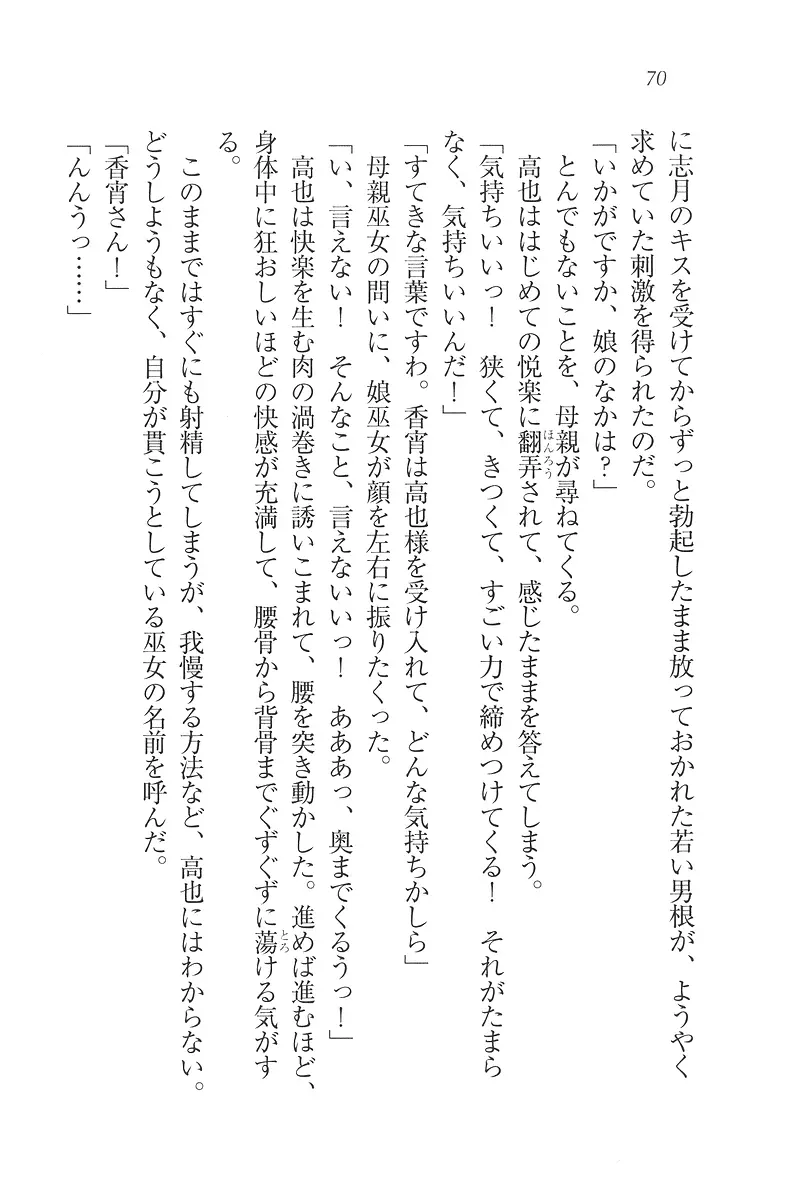 70
に志月のキスを受けてからずっと勃起したまま放っておかれた若い男根が、ようやく
求めていた刺激を得られたのだ。
「いかがですか、娘のなかは？」
とんでもないことを、母親が尋ねてくる。
高也ははじめての悦楽に翻弄されて、感じたままを答えてしまう。
「気持ちいいっ！　狭くて、きつくて、すごい力で締めつけてくる！　それがたまら
なく、気持ちいいんだ！」
「すてきな言葉ですわ。香宵は高也様を受け入れて、どんな気持ちかしら」
母親巫女の問いに、娘巫女が顔を左右に振りたくった。
「い、言えない！　そんなこと、言えないいっ！　あああっ、奥までくるうっ！」
高也は快楽を生む肉の渦巻きに誘いこまれて、腰を突き動かした。進めば進むほど、
身体中に狂おしいほどの快感が充満して、腰骨から背骨までぐずぐずに蕩ける気がす
る。
このままではすぐにも射精してしまうが、我慢する方法など、高也にはわからない。
どうしようもなく、自分が貫こうとしている巫女の名前を呼んだ。
「香宵さん！」
「んんうっ……」